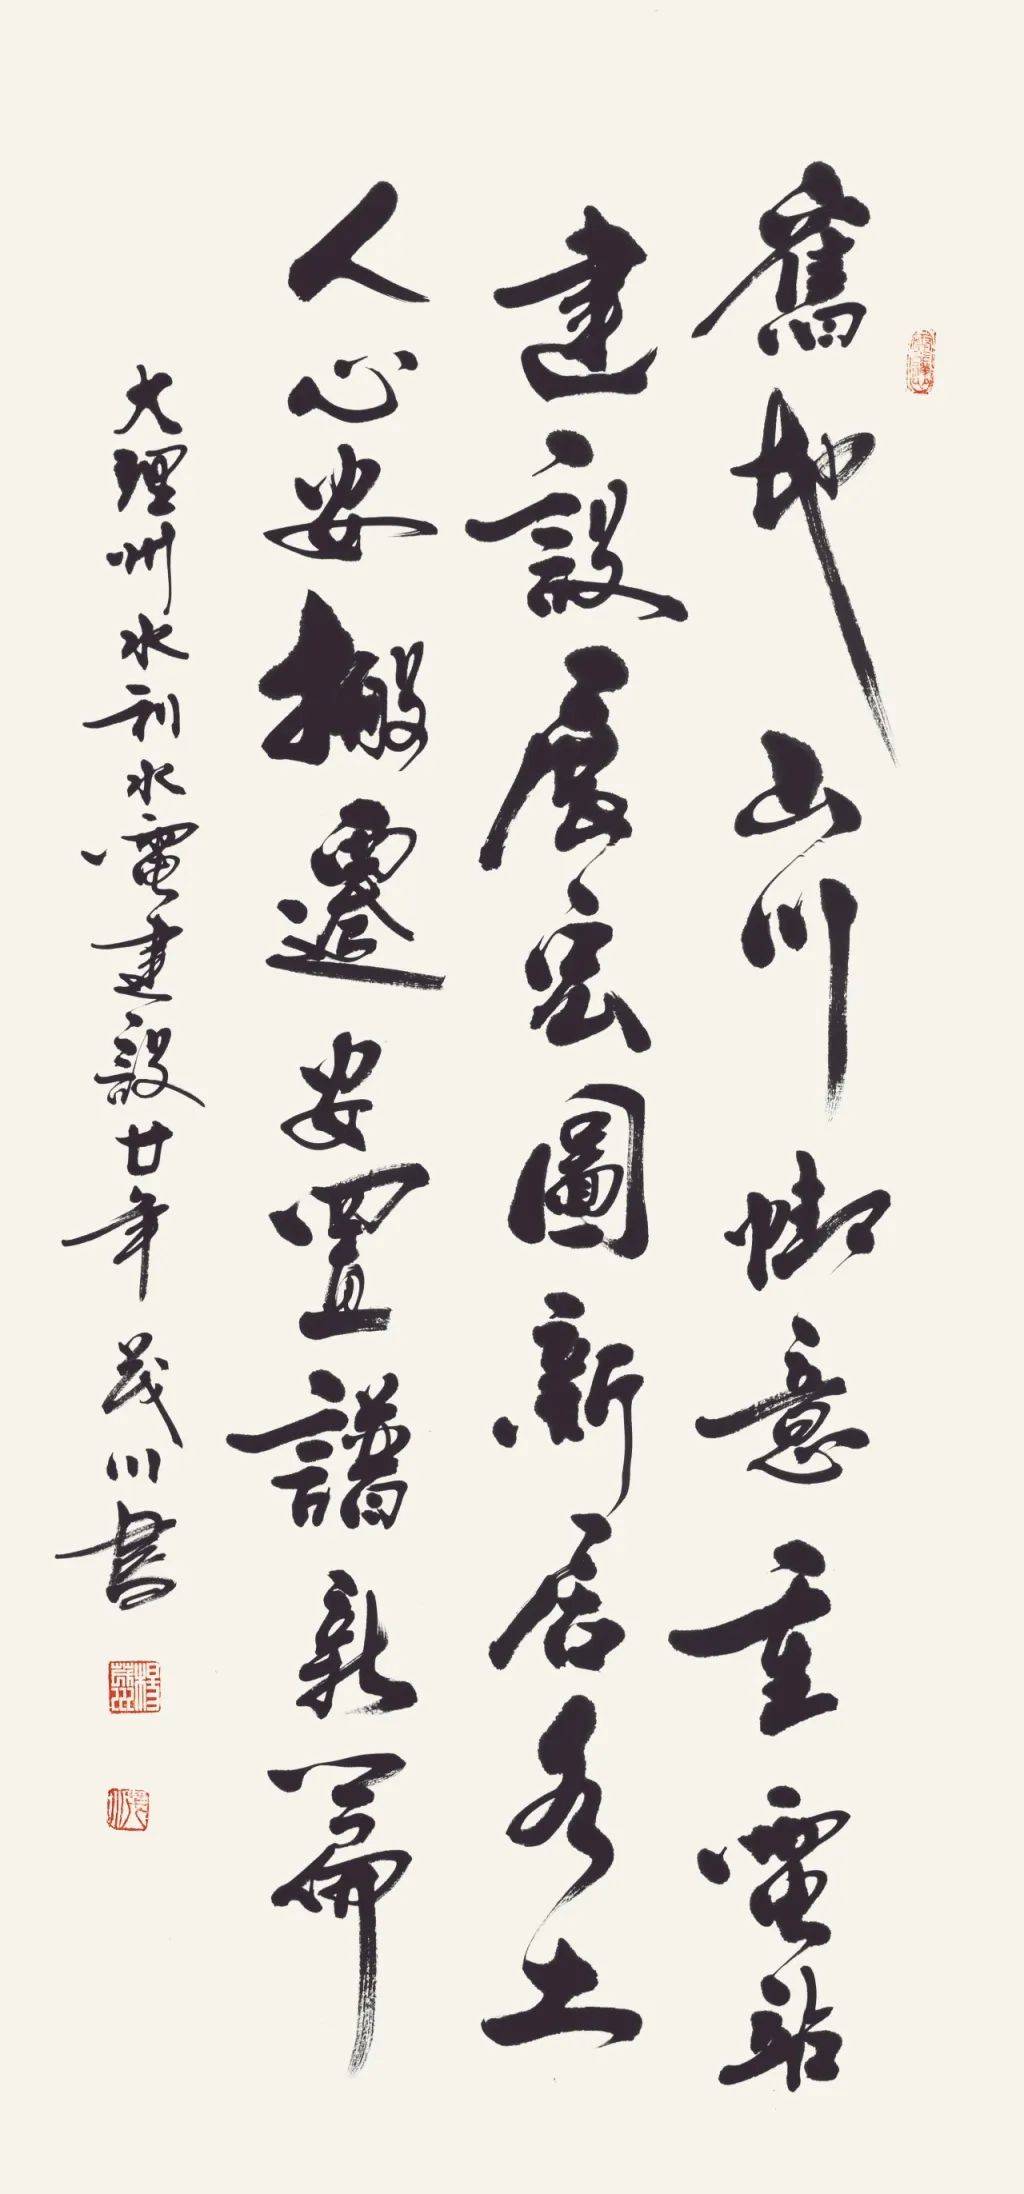 舊地山川意重電站
建設展宏圖新居水土
人心安搬遷安置譜新篇
大理州水利水電建設廿年 茂川書